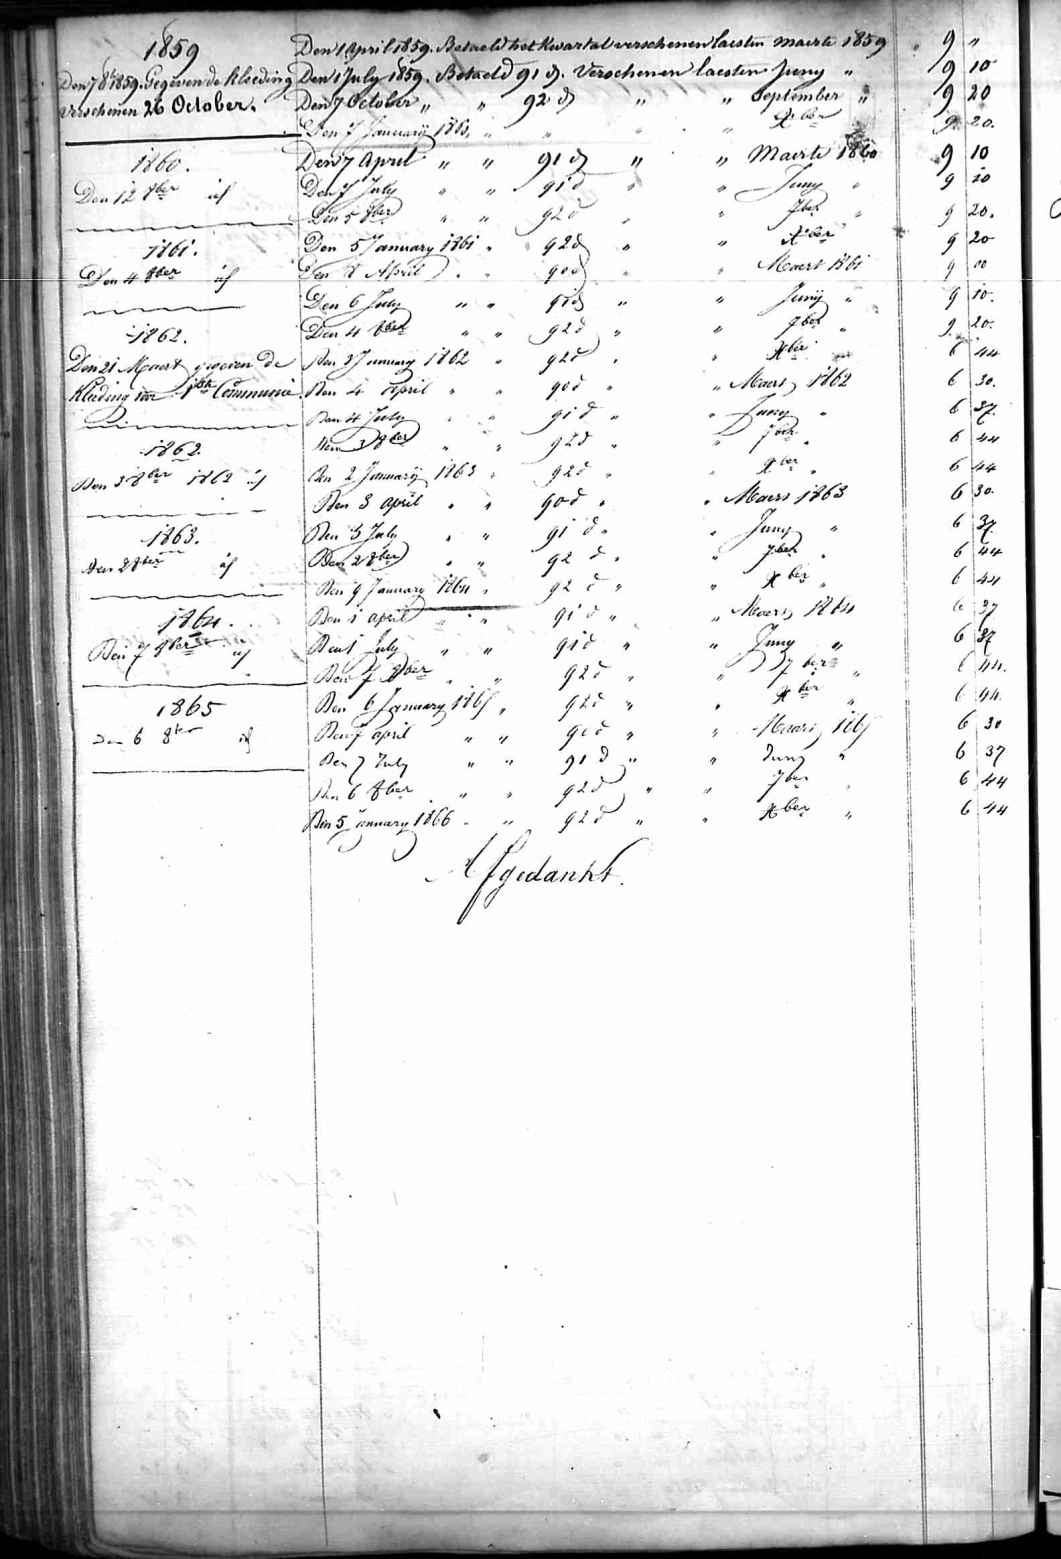 1859
Den 7 8r 1859. Gegeven de Kleeding
Verschenen 26 October.
1860.
Den 12 8ber id
1861.
Den 4 8ber id
1862.
Den 21 Maart gegeven de
Kleeding voor 1ste Communie
1862.
Den 3 8ber 1862 id
1863.
Den 2 8ber id
1864.
Den 7 8ber id
1865
Den 6 8ber id
Den 1 April 1859. Betaeld het Kwartal verschenen laesten Maerte 1859 " 9 "
Den 1 July 1859. Betaeld 91 d. Verschenen laesten Juny " 9 10
Den 7 October " " 92 d " " September " 9 20
Den 7 January 1860. " " " " Xber 9 20.
Den 7 April " " 91 d " " Maerte 1860 9 10
Den 7 July " " 91 d " " Juny " 9 10
Den 5 8ber " " 92 d " " 7ber " 9 20.
Den 5 January 1861 " 92 d " " Xber 9 20
Den 8 April " " 90 d " " Maert 1861 9 00
Den 6 July " " 91 d " " Juny " 9 10.
Den 4 8ber " " 92 d " " 7ber " 9. 20.
Den 3 January 1862 " 92 d " " Xber 6 44
Den 4 April " " 90 d " " Maers 1862 6 30.
Den 4 July " " 91 d " " Juny " 6 37.
Den 3 8ber " " 92 d " " 7ber " 6 44
Den 2 January 1863 " 92 d " " Xber " 6 44
Den 3 April " " 90 d " " Maers 1863 6 30.
Den 3 July " " 91 d " " Juny " 6 37.
Den 2 8ber " " 92 d " " 7ber " 6 44
Den 9 January 1864 " 92 d " " Xber " 6 44
Den 1 april " " 91 d " " Maers 1864 6 37
Den 1 July " " 91 d " " Juny " 6 37
Den 7 8ber " " 92 d " " 7ber " 6 44.
Den 6 January 1865 " 92 d " " Xber " 6 44.
Den 7 april " " 90 d " " Maers 1865 6 30
Den 7 July " " 91 d " " Juny " 6 37
Den 6 8ber " " 92 d " " 7ber " 6 44
Den 5 January 1866 " " 92 d " " Xber " 6 44
Afgedankt.